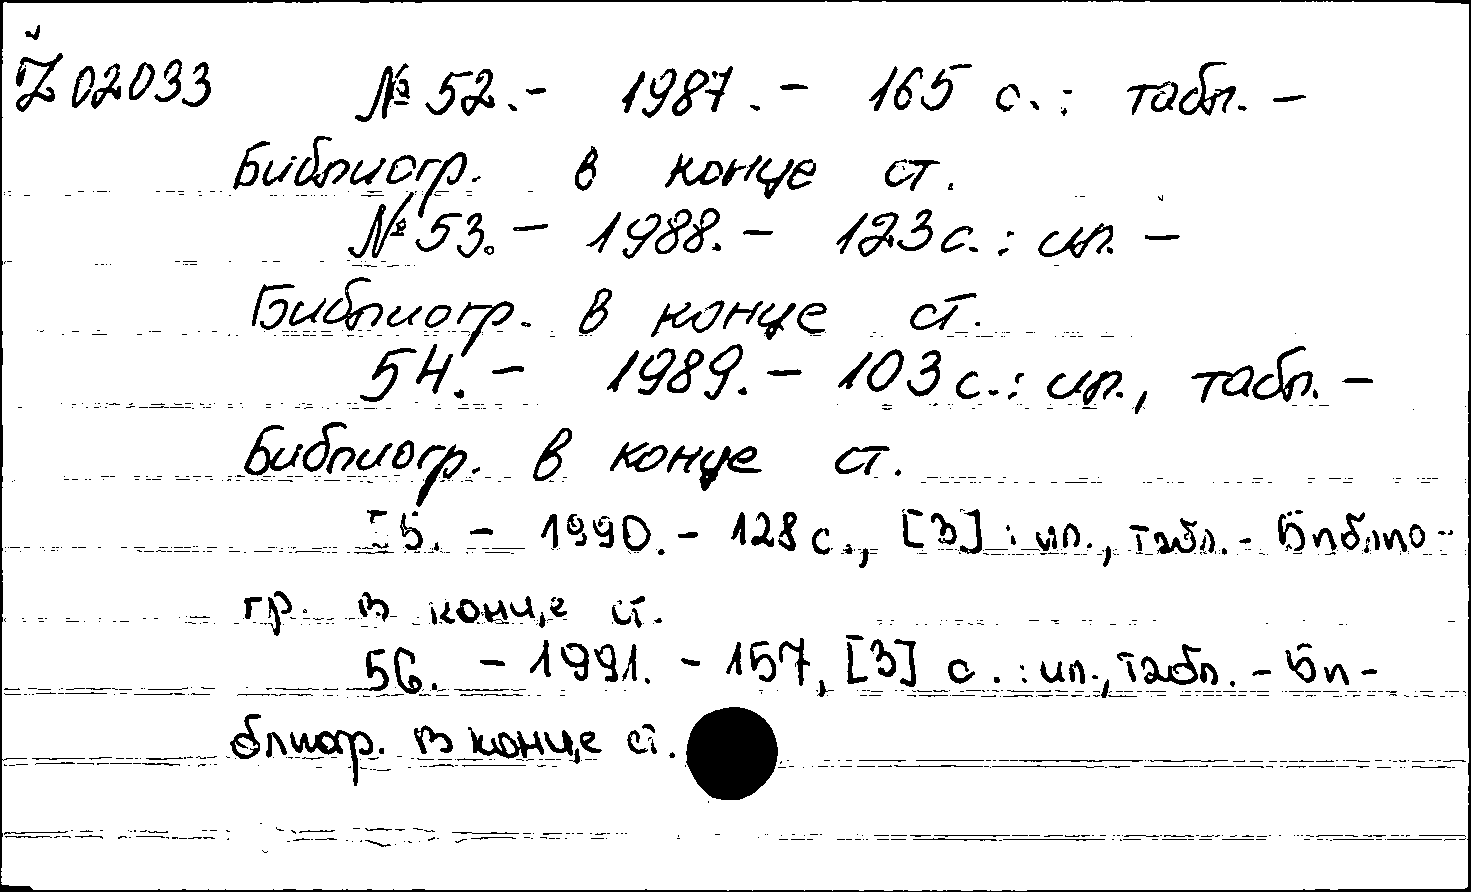 Ž 02033 № 52.- 1987.- 165 с.: табл. –
Библиогр. в конце ст.
№ 53. – 1988. – 123 с.: ил. –
Библиогр. в конце ст.
54. – 1989. – 103 с.: ил., табл. –
Библиогр. в конце ст.
55. – 1990. – 128 с., [3] : ил., табл. – Библио-
гр. в конце ст.
56. – 1991. – 157, [3] с. : ил., табл. – Би-
блиогр. в конце ст.